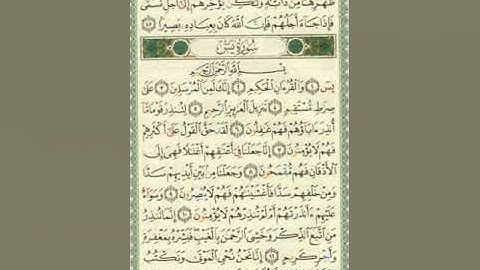 ظَهْرِهَا مِن دَآبَّةٍ وَلَٰكِن يُؤَخِّرُهُمْ إِلَىٰٓ أَجَلٍ مُّسَمًّى
فَإِذَا جَآءَ أَجَلُهُمْ فَإِنَّ ٱللَّهَ كَانَ بِعِبَادِهِۦ بَصِيرًۢا ﴿٤٥﴾
سُورَةُ يسٓ
بِسْمِ ٱللَّهِ ٱلرَّحْمَٰنِ ٱلرَّحِيمِ
يسٓ ﴿١﴾ وَٱلْقُرْءَانِ ٱلْحَكِيمِ ﴿٢﴾ إِنَّكَ لَمِنَ ٱلْمُرْسَلِينَ ﴿٣﴾ عَلَىٰ
صِرَٰطٍ مُّسْتَقِيمٍ ﴿٤﴾ تَنزِيلَ ٱلْعَزِيزِ ٱلرَّحِيمِ ﴿٥﴾ لِتُنذِرَ قَوْمًا مَّآ
أُنذِرَ ءَابَآؤُهُمْ فَهُمْ غَٰفِلُونَ ﴿٦﴾ لَقَدْ حَقَّ ٱلْقَوْلُ عَلَىٰٓ أَكْثَرِهِمْ
فَهُمْ لَا يُؤْمِنُونَ ﴿٧﴾ إِنَّا جَعَلْنَا فِىٓ أَعْنَٰقِهِمْ أَغْلَٰلًا فَهِىَ إِلَى
ٱلْأَذْقَانِ فَهُم مُّقْمَحُونَ ﴿٨﴾ وَجَعَلْنَا مِنۢ بَيْنِ أَيْدِيهِمْ سَدًّا
وَمِنْ خَلْفِهِمْ سَدًّا فَأَغْشَيْنَٰهُمْ فَهُمْ لَا يُبْصِرُونَ ﴿٩﴾ وَسَوَآءٌ
عَلَيْهِمْ ءَأَنذَرْتَهُمْ أَمْ لَمْ تُنذِرْهُمْ لَا يُؤْمِنُونَ ﴿١٠﴾ إِنَّمَا تُنذِرُ
مَنِ ٱتَّبَعَ ٱلذِّكْرَ وَخَشِىَ ٱلرَّحْمَٰنَ بِٱلْغَيْبِ فَبَشِّرْهُ بِمَغْفِرَةٍ
وَأَجْرٍ كَرِيمٍ ﴿١١﴾ إِنَّا نَحْنُ نُحْىِ ٱلْمَوْتَىٰ وَنَكْتُبُ